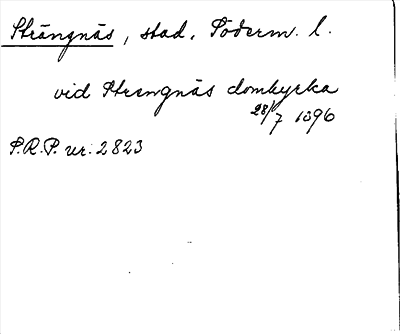 Strängnäs, stad, Söderm. l.
vid Strengnäs domkyrka
28/7 1396
S.R.P. nr. 2823